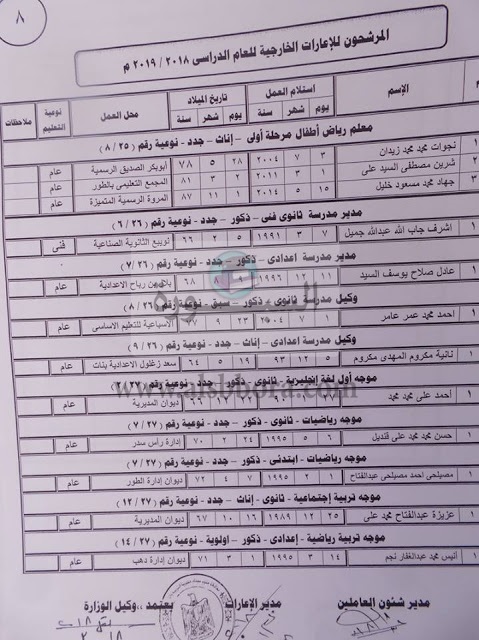 ٨
المرشحون للإعارات الخارجية للعام الدراسى ٢٠١٨ / ٢٠١٩ م
م الإسم استلام العمل تاريخ الميلاد محل العمل نوعية التعليم ملاحظات
يوم شهر سنة يوم شهر سنة
معلم رياض أطفال مرحلة أولى - إناث - جدد - نوعية رقم ( ٢٥ / ٨ )
١ نجوات محمد محمد زيدان ٣ ٧ ٢٠٠٤ ٢٨ ٥ ٧٨ أبوبكر الصديق الرسمية عام
١ شرين مصطفى السيد على ١ ٣ ٢٠١١ ٢ ٣ ٨١ المجمع التعليمى بالطور عام
١ جهاد محمد مسعود خليل ١٥ ٥ ٢٠١٤ ١ ١١ ٨٧ المروة الرسمية المتميزة عام
مدير مدرسة ثانوى فنى - ذكور - جدد - نوعية رقم ( ٢٦ / ٦ )
١ اشرف جاب الله عبدالله جميل ٧ ٣ ١٩٩١ ٥ ٢ ٦٦ نويبع الثانوية الصناعية فنى
مدير مدرسة اعدادى - ذكور - جدد - نوعية رقم ( ٢٦ / ٧ )
١ عادل صلاح يوسف السيد ١١ ١٢ ١٩٩٦ ٩ ٦٨ رباح الاعدادية عام
وكيل مدرسة ثانوى - ذكور - سبق - نوعية رقم ( ٢٦ / ٨ )
١ احمد محمد عمر عامر ١ ٧ ٢٠٠٤ ٢٣ ٩ للتعليم الاساسى عام
وكيل مدرسة اعدادى - إناث - جدد - نوعية رقم ( ٢٦ / ٩ )
١ نادية مكروم المهدى مكروم ٥ ١٢ ٩٣ ١٩ ٥ ٦٤ سعد زغلول الاعدادية بنات عام
موجه أول لغة إنجليزية - ثانوى - ذكور - جدد - نوعية رقم
www.alsbbora.com
١ أحمد على محمد محمد ديوان المديرية عام
موجه رياضيات - ثانوى - ذكور - جدد - نوعية رقم ( ٢٧ / ٧ )
١ حسن محمد محمد على قنديل ٦ ٥ ١٩٩٥ ٢٤ ٢ ٧٠ إدارة رأس سدر عام
موجه رياضيات - ابتدئى - ذكور - جدد - نوعية رقم ( ٢٧ / ٧ )
١ مصيلحى احمد مصيلحى عبدالفتاح ١ ٢ ١٩٩٥ ٧ ٤ ٧٢ ديوان إدارة الطور عام
موجه تربية إجتماعية - ثانوى - إناث - جدد - نوعية رقم ( ٢٧ / ١٢ )
١ عزيزة عبدالفتاح محمد على ٢٥ ١٢ ١٩٨٩ ١٦ ١٠ ٦٧ ديوان المديرية عام
موجه تربية رياضية - إعدادى - ذكور - اولوية - نوعية رقم ( ٢٧ / ١٤ )
١ أنيس محمد عبدالغفار نجم ١٤ ٣ ١٩٩٥ ١ ٣ ٧١ ديوان إدارة دهب عام
مدير شئون العاملين مدير الإعارات يعتمد ،، وكيل الوزارة